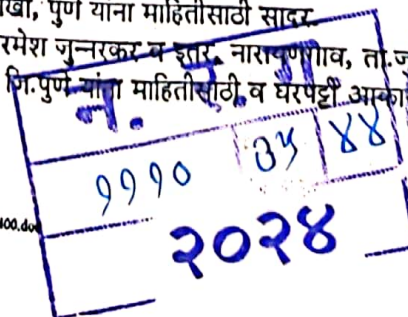 खा, पुणे यांना माहितीसाठी सादर.
रमेश जुन्नरकर व इतर, नारायणगाव, ता.जु
जि.पुणे यांना माहितीसाठी व घरपट्टी आका
न.
१११० ३५ ४४
२०२४